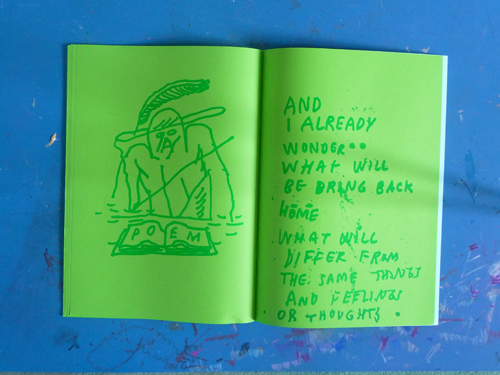 POEM
AND
I ALREADY
WONDER..
WHAT WILL
BE BRING BACK
HOME
WHAT WILL
DIFFER FROM
THE SAME THINGS
AND FEELINGS
OR THOUGHTS.